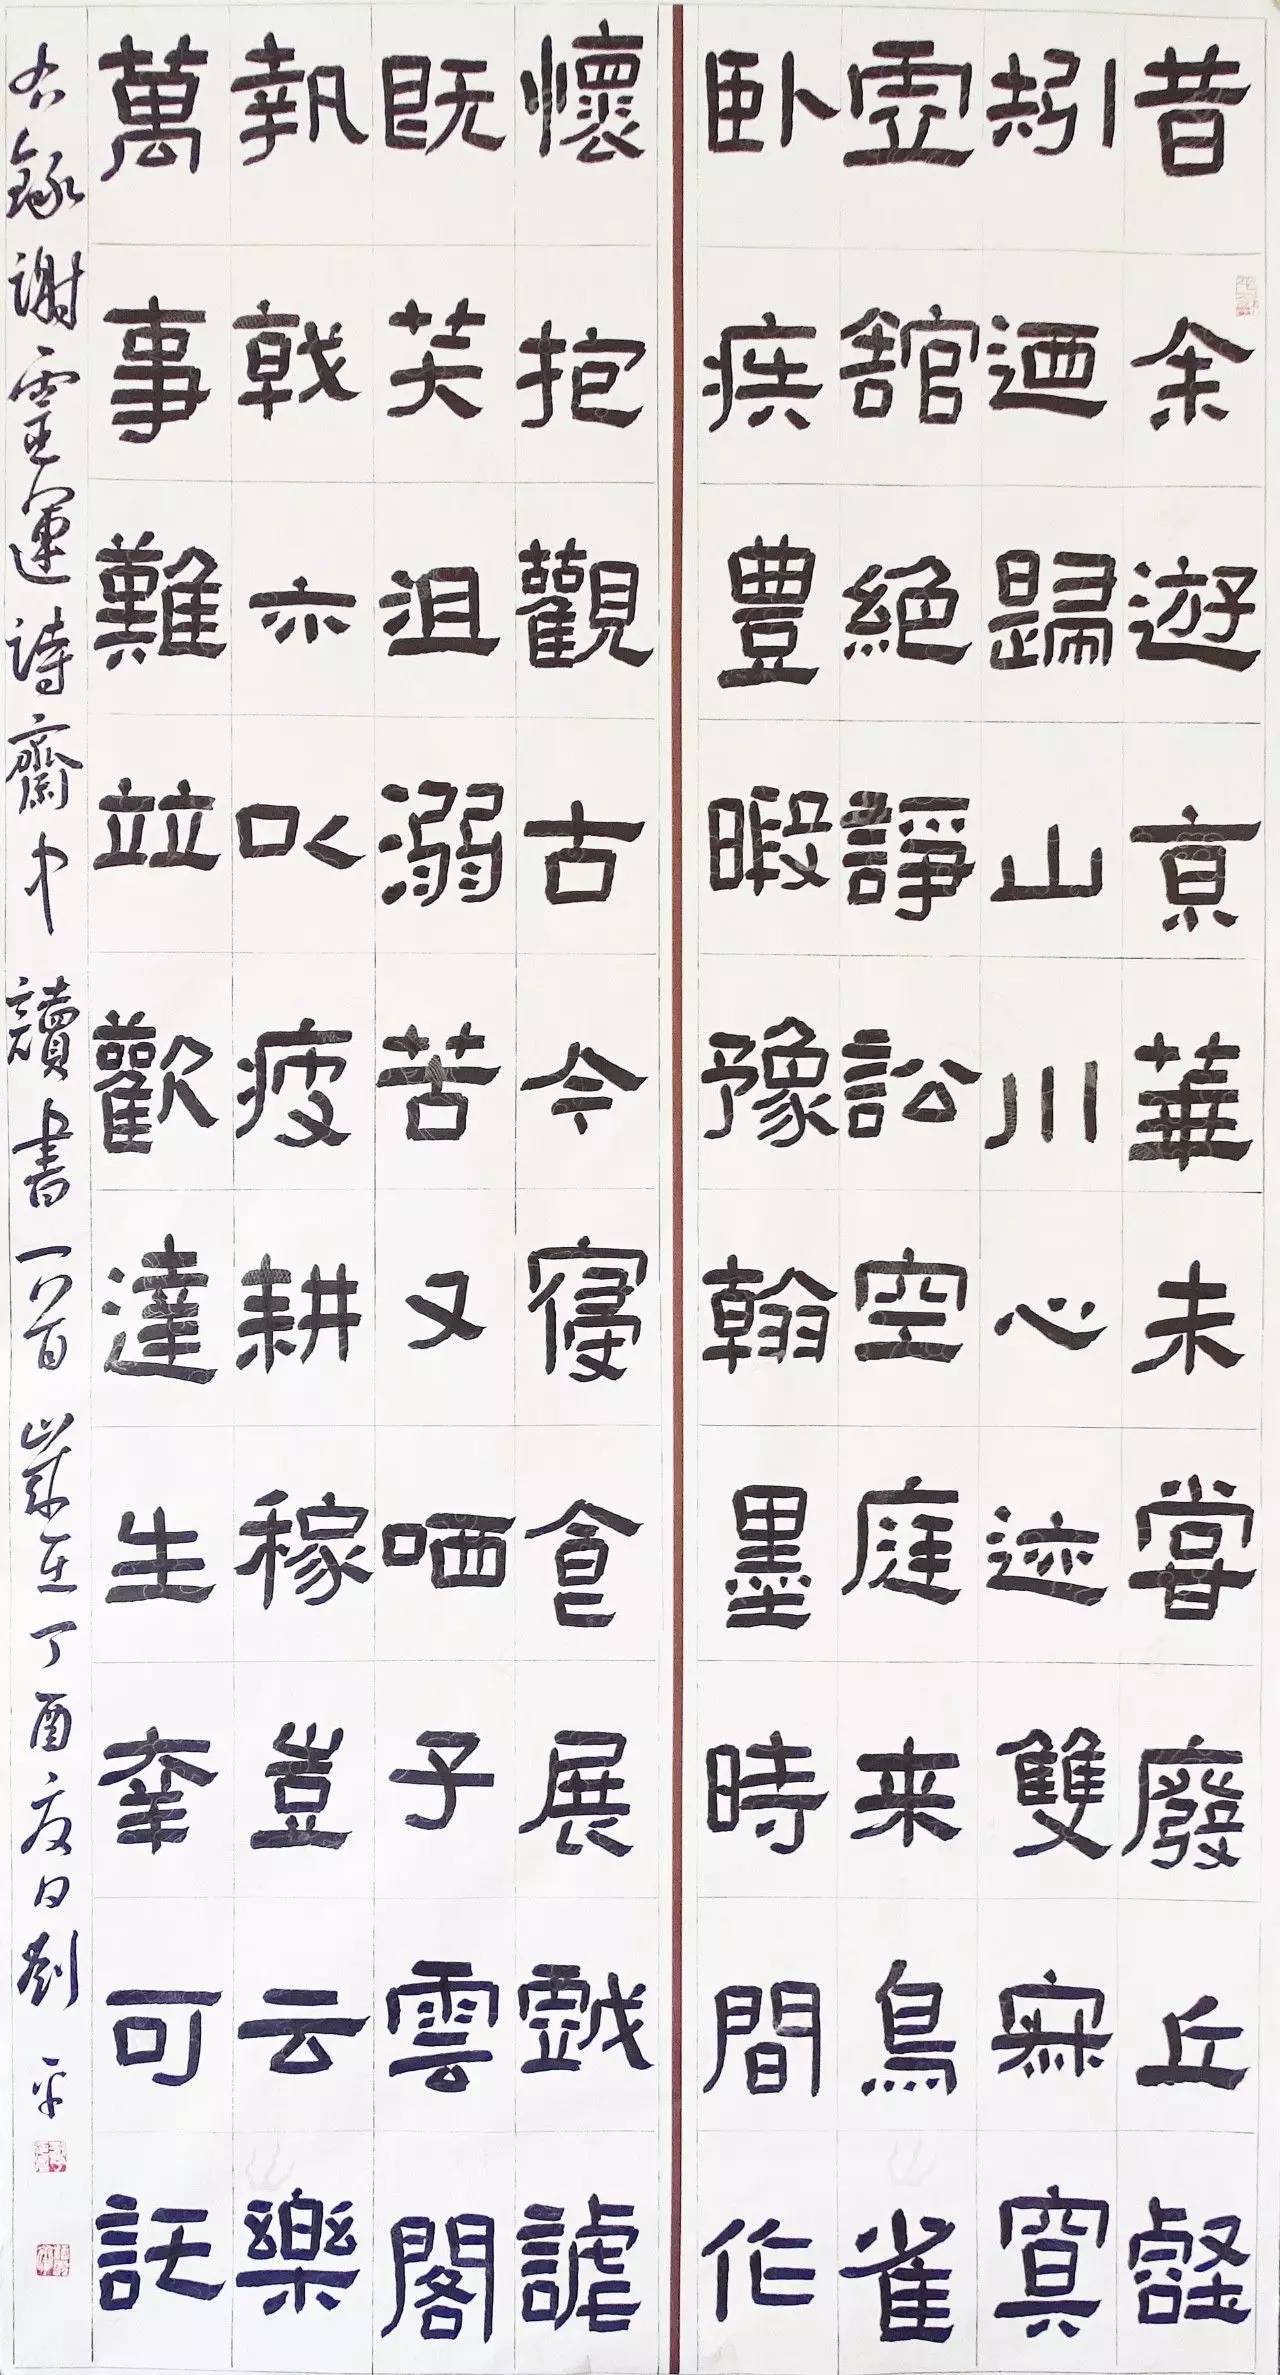 昔余遊亰華未嘗廢丘壑
矧迺歸山川心迹雙寂寞
虛舘絕諍訟空庭来鳥雀
卧疾豊暇豫翰墨時間作
懷抱觀古今寢食展戲謔
既笑沮溺苦又哂子雲閣
執戟亦以疲耕稼豈云樂
萬事難竝歡達生幸可託
右錄謝靈運詩齋中讀書一首歲在丁酉夏日劉平